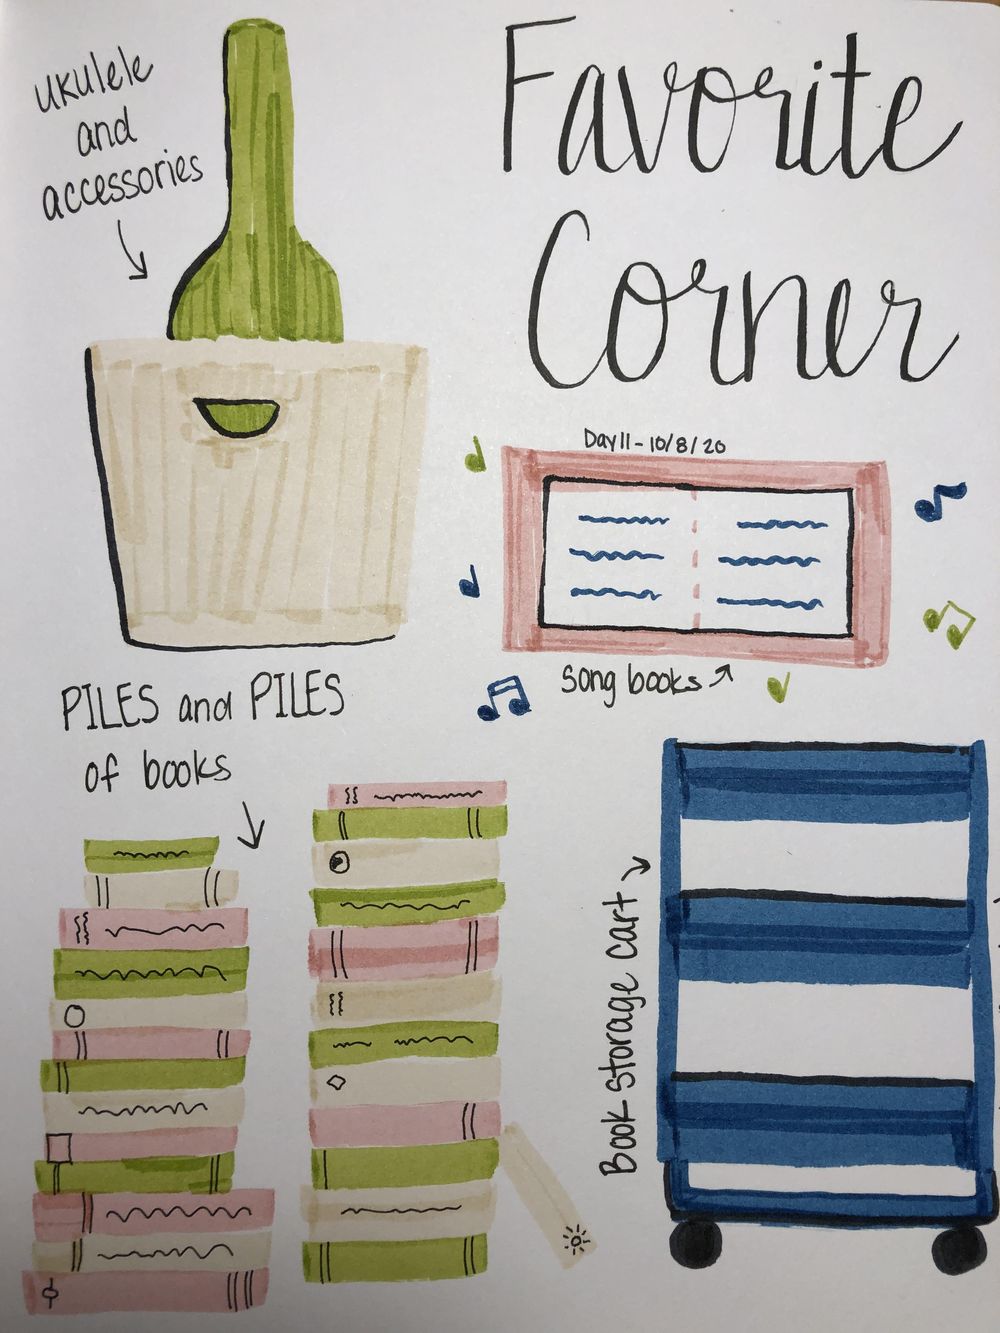 Favorite
Corner
ukulele
and
accessories
Day 11 - 10/8/20
Song books
PILES and PILES
of books
Book storage cart